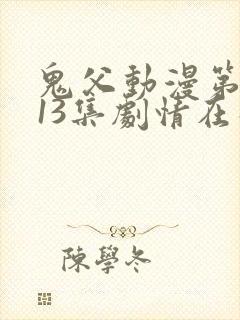 鬼父動漫第
13集劇情在
陳學冬